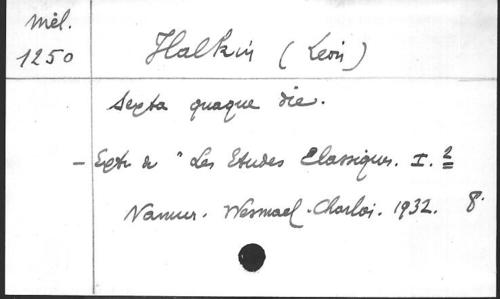 Mél.
1250
Halkin (Léon)
Sexta quaque die.
- Extr. de "Les Etudes Classiques. I. 2
Namur. Wesmael-Charlier. 1932. 8.